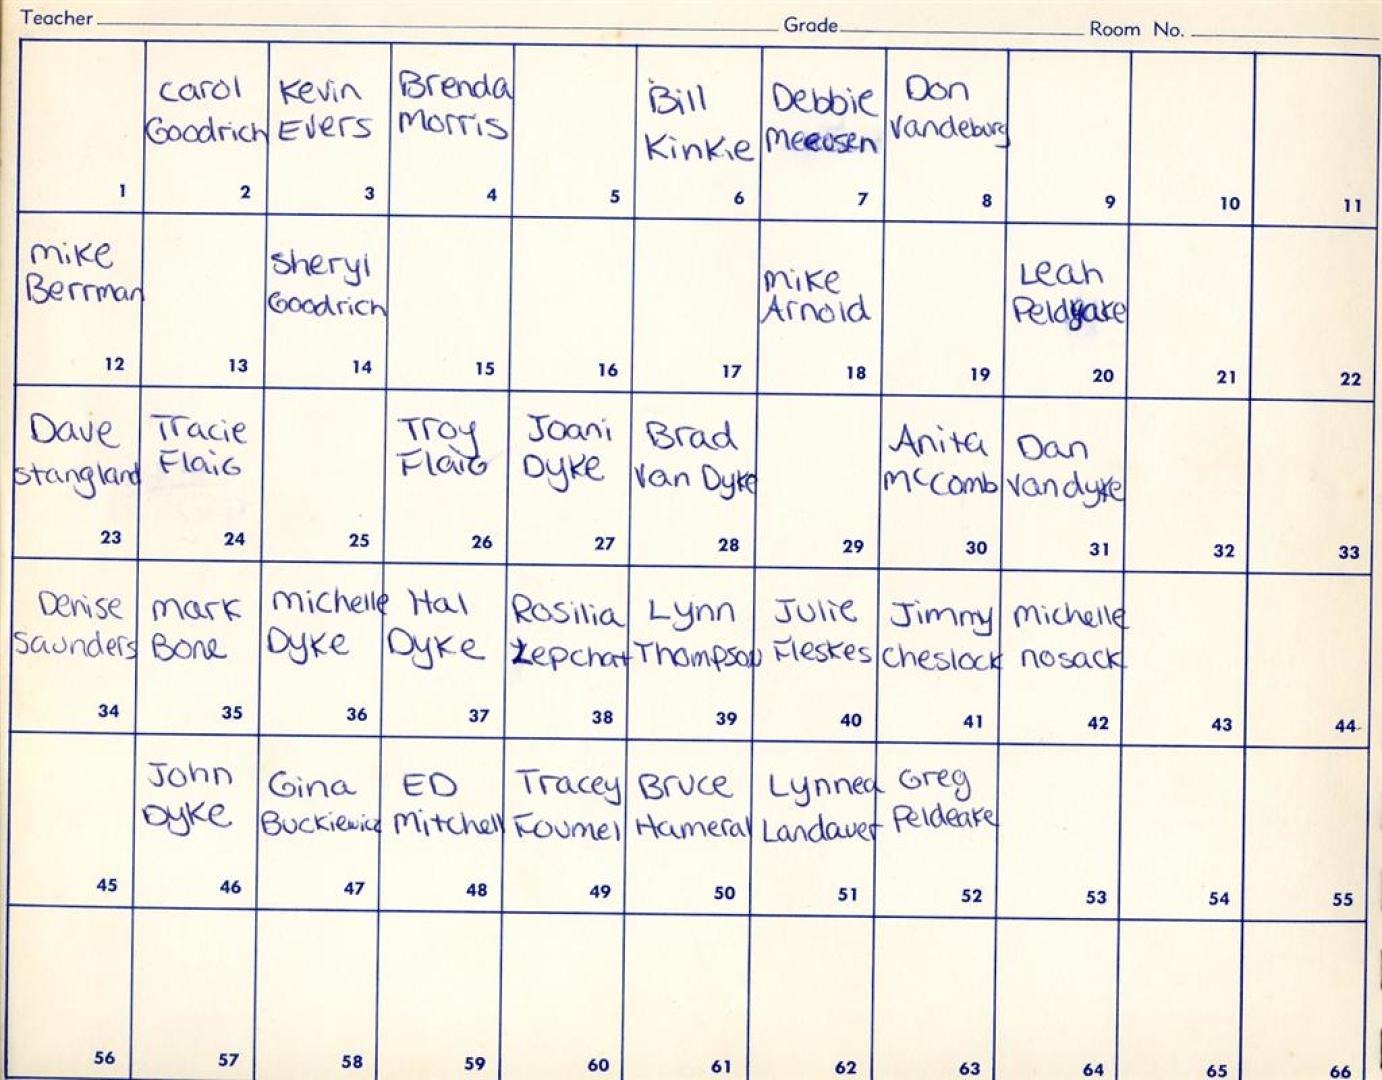 Teacher Grade Room No.
Carol Goodrich 2
Kevin Evers 3
Brenda Morris 4
5
Bill Kinkie 6
Debbie Meeusen 7
Don Vandeburg 8
9
10
11
1
Mike Berrman 12
13
Sheryl Goodrich 14
15
16
17
Mike Arnold 18
19
Leah 20
21
22
Dave Stangland 23
Tracie Flaig 24
25
Troy Flaig 26
Joani Dyke 27
Brad Van Dyke 28
29
Anita McComb 30
Dan Vandyke 31
32
33
Denise Saunders 34
Mark Bone 35
Michelle Dyke 36
Hal Dyke 37
Rosilia Zepchat 38
Lynn Thompson 39
Julie Fleskes 40
Jimmy Cheslock 41
Michelle nosack 42
43
44
45
John Dyke 46
Gina Buckiewicz 47
ED Mitchell 48
Tracey Foumel 49
Bruce Hameral 50
Lynnea Landauer 51
Greg Peldeake 52
53
54
55
56
57
58
59
60
61
62
63
64
65
66